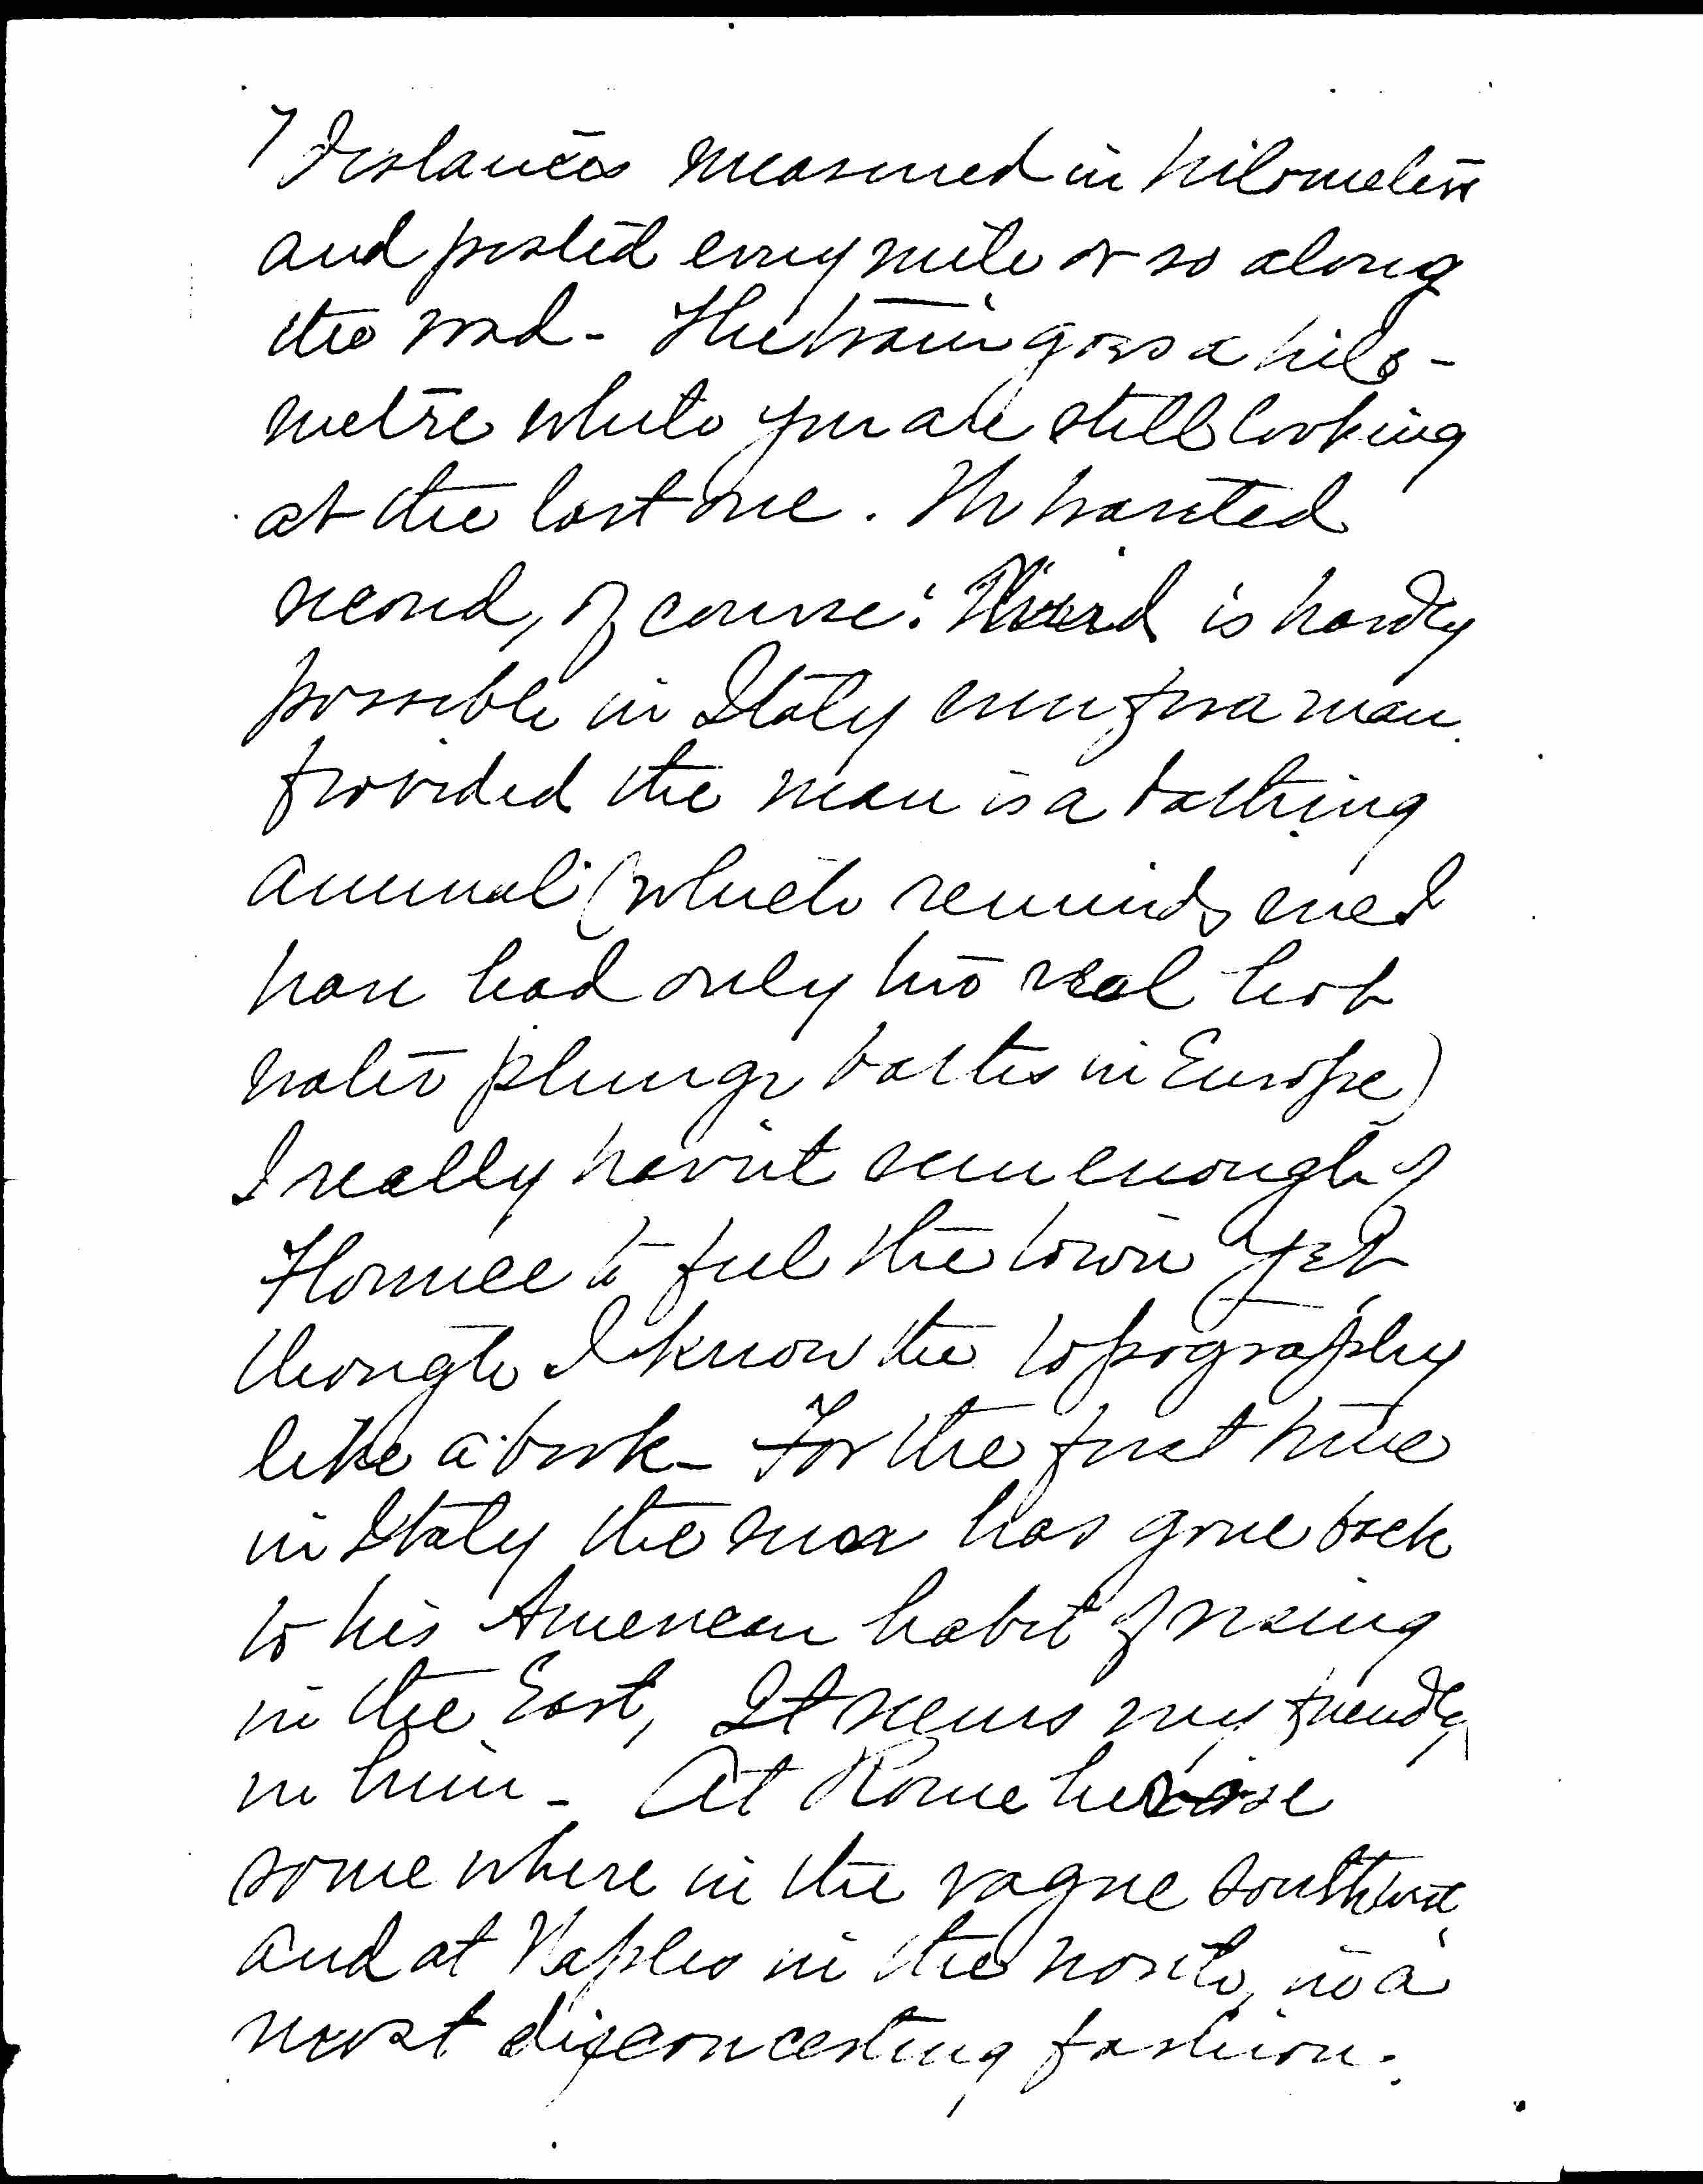 7 Distances measured in kilometers
and posted every mile or so along
the road - The train goes a kilo-
metre while you are still looking
at the last one. We wanted
second, of course: Third is hardly
possible in Italy even for a man
provided the man is a bathing
animal (which reminds me I
have had only two real hot
water plunge baths in Europe)
I really havn't seen enough of
Florence to feel the town yet
though I know the topography
like a book - For the first time
in Italy the sun has gone back
to his American habit of rising
in the East, It seems very friendly
in him - At Rome he rose
somewhere in the vague southwest
and at Naples in the north, in a
most disconcerting fashion.